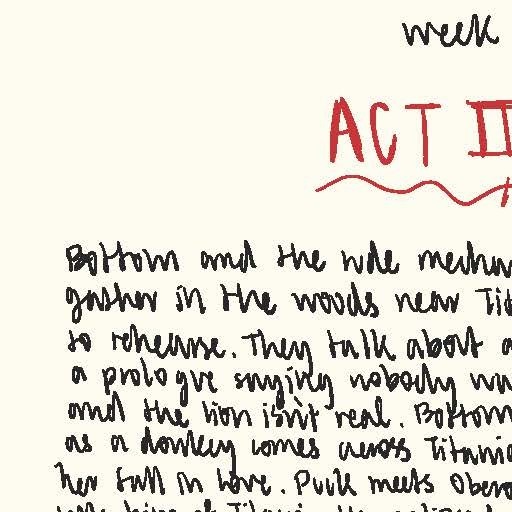 week
ACT II
Bottom and the rude mechan
gather in the woods near Tit
to rehearse. They talk about a
a prologue saying nobody wa
and the lion isn't real. Bottom
as a donkey comes across Titania
her fall in love. Puck meets Obero